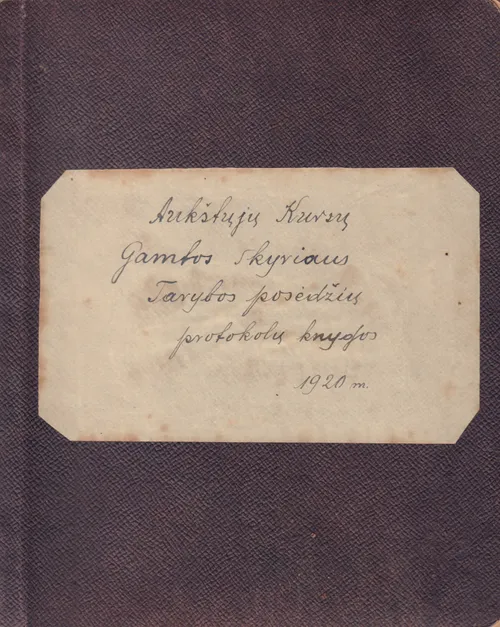 Aukštųjų Kursų
Gamtos skyriaus
Tarybos posėdžių
protokolų knygos
1920 m.